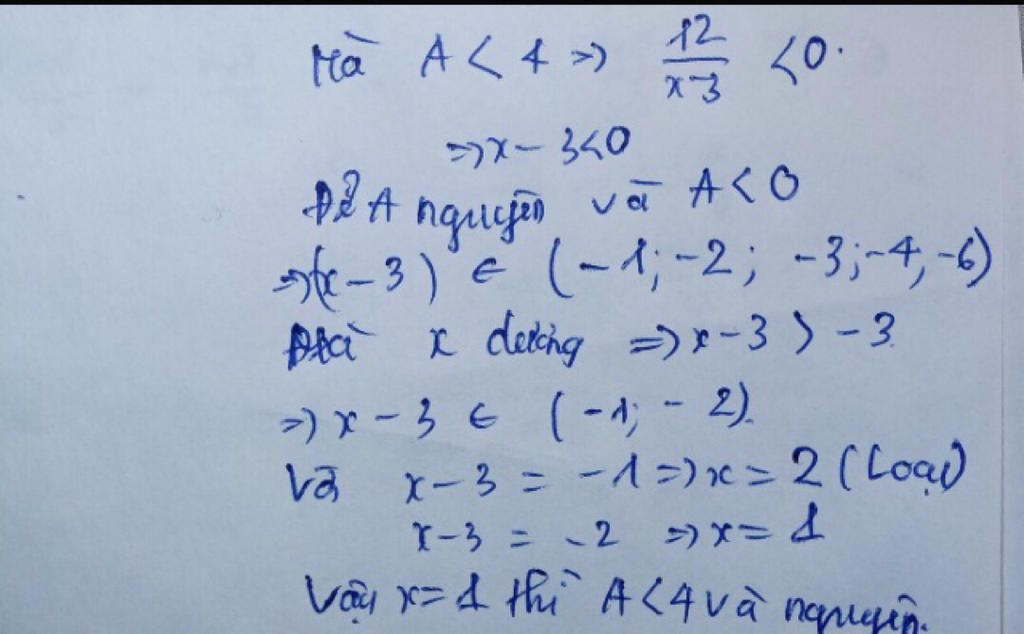 Mà A < 4 => 12/(x-3) < 0.
=> x - 3 < 0
Để A nguyên và A < 0
=> (x - 3) ∈ (-1; -2; -3; -4, -6)
Mà x dương => x - 3 > -3
=> x - 3 ∈ (-1; -2).
Và x - 3 = -1 => x = 2 (Loại)
x - 3 = -2 => x = 1
Vậy x = 1 thì A < 4 và nguyên.